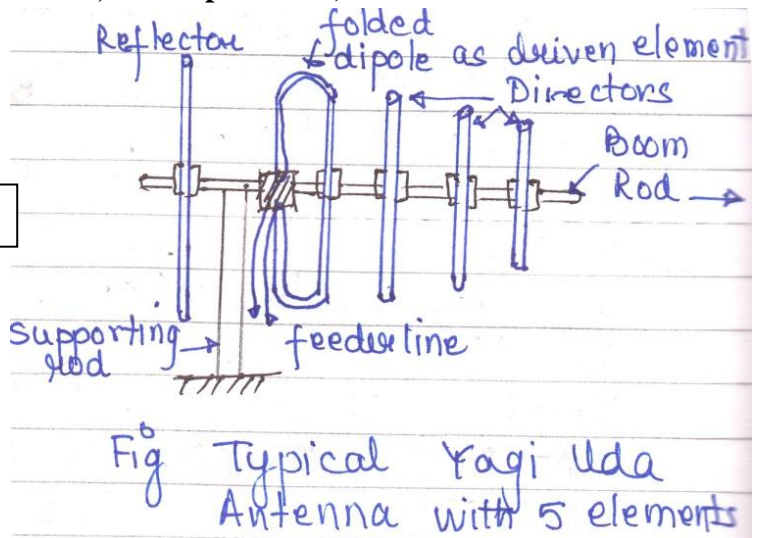 Reflector
folded
dipole as driven element
Directors
Boom
Rod
supporting
rod
feeder line
Fig Typical Yagi Uda
Antenna with 5 elements